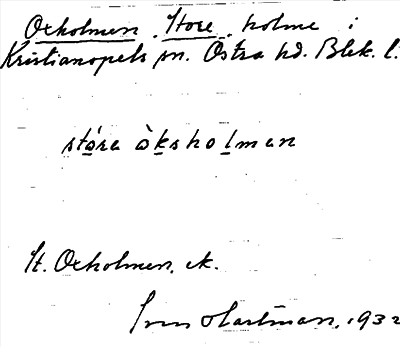 Oxholmen, Store, holme i
Kristianopels sn. Östra hd. Blek. l.
stóra òksholman
St. Oxholmen, ek.
Sven Hartman, 1932